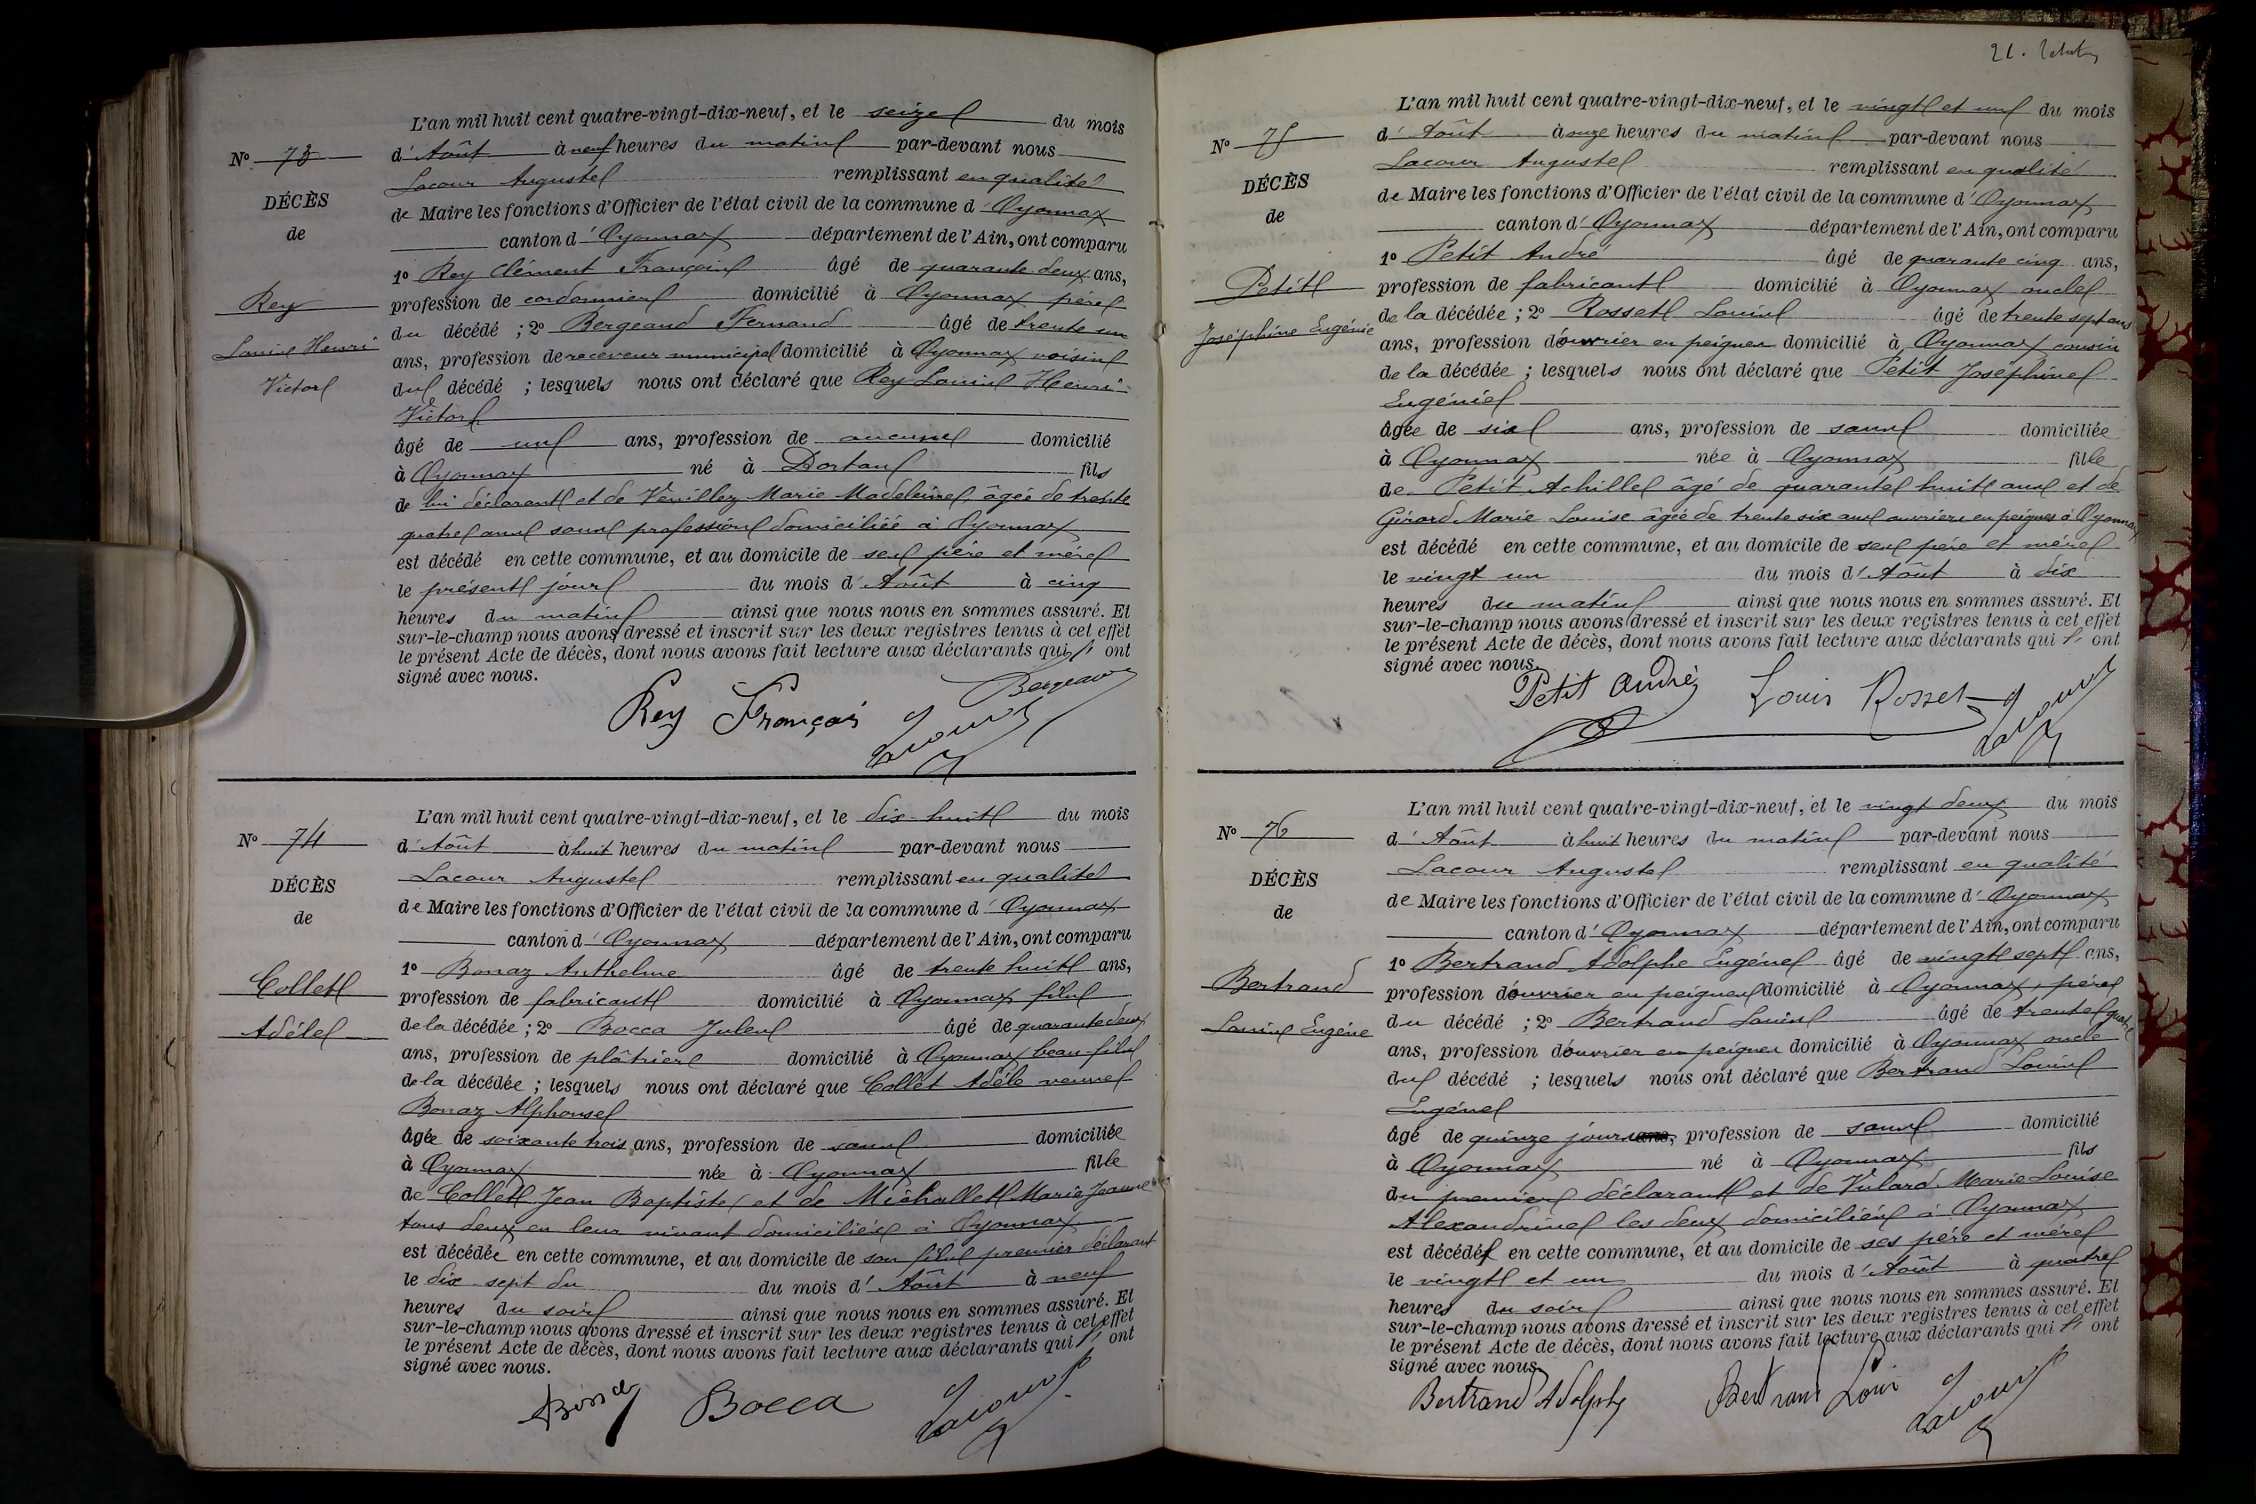 L'an mil huit cent quatre-vingt-dix-neuf, et le seize du mois
N° 73
d'Août à neuf heures du matin par-devant nous
Lacour Auguste remplissant en qualité
DÉCÈS
de Maire les fonctions d'Officier de l'état civil de la commune d'Oyonnax
de
canton d'Oyonnax département de l'Ain, ont comparu
1° Rey Clément François âgé de quarante deux ans,
Rey
profession de cordonnier domicilié à Oyonnax père
du décédé ; 2° Bergeaud Fernand âgé de trente un
Louis Henri
ans, profession de receveur municipal domicilié à Oyonnax voisin
Victor
du décédé ; lesquels nous ont déclaré que Rey Louis Henri
Victor
âgé de un ans, profession de aucune domicilié
à Oyonnax né à Dortan fils
de lui déclarant et de Vuillez Marie Madeleine âgée de trente
quatre ans sans profession domiciliée à Oyonnax
est décédé en cette commune, et au domicile de ses père et mère
le présent jour du mois d'Août à cinq
heures du matin ainsi que nous nous en sommes assuré. Et
sur-le-champ nous avons dressé et inscrit sur les deux registres tenus à cet effet
le présent Acte de décès, dont nous avons fait lecture aux déclarants qui ont
signé avec nous.
Rey François Bergeaud
Lacour
L'an mil huit cent quatre-vingt-dix-neuf, et le dix-huit du mois
N° 74
d'Août à huit heures du matin par-devant nous
Lacour Auguste remplissant en qualité
DÉCÈS
de Maire les fonctions d'Officier de l'état civil de la commune d'Oyonnax
de
canton d'Oyonnax département de l'Ain, ont comparu
1° Bonaz Anthelme âgé de trente huit ans,
Collet
profession de fabricant domicilié à Oyonnax fils
Adèle
de la décédée ; 2° Bocca Jules âgé de quarante deux
ans, profession de plâtrier domicilié à Oyonnax beau-fils
de la décédée ; lesquels nous ont déclaré que Collet Adèle veuve
Bonaz Alphonse
âgée de soixante trois ans, profession de sans domiciliée
à Oyonnax née à Oyonnax fille
de Collet Jean Baptiste et de Michallet Marie Jeanne
tous deux en leur vivant domiciliés à Oyonnax
est décédée en cette commune, et au domicile de son fils premier déclarant
le dix-sept du du mois d'Août à neuf
heures du soir ainsi que nous nous en sommes assuré. Et
sur-le-champ nous avons dressé et inscrit sur les deux registres tenus à cet effet
le présent Acte de décès, dont nous avons fait lecture aux déclarants qui ont
signé avec nous.
Bocca Lacour
21.
L'an mil huit cent quatre-vingt-dix-neuf, et le vingt et un du mois
N° 75
d'Août à onze heures du matin par-devant nous
Lacour Auguste remplissant en qualité
DÉCÈS
de Maire les fonctions d'Officier de l'état civil de la commune d'Oyonnax
de
canton d'Oyonnax département de l'Ain, ont comparu
1° Petit André âgé de quarante cinq ans,
Petit
profession de fabricant domicilié à Oyonnax oncle
Joséphine Eugénie
de la décédée ; 2° Rosset Louis âgé de trente sept ans
ans, profession d'ouvrier en peignes domicilié à Oyonnax cousin
de la décédée ; lesquels nous ont déclaré que Petit Joséphine
Eugénie
âgée de six ans, profession de sans domiciliée
à Oyonnax née à Oyonnax fille
de Petit Achille âgé de quarante huit ans et de
Girard Marie Louise âgée de trente six ans ouvriers en peignes à Oyonnax
est décédé en cette commune, et au domicile de ses père et mère
le vingt un du mois d'Août à dix
heures du matin ainsi que nous nous en sommes assuré. Et
sur-le-champ nous avons dressé et inscrit sur les deux registres tenus à cet effet
le présent Acte de décès, dont nous avons fait lecture aux déclarants qui ont
signé avec nous.
Petit André Louis Rosset Lacour
L'an mil huit cent quatre-vingt-dix-neuf, et le vingt deux du mois
N° 76
d'Août à huit heures du matin par-devant nous
Lacour Auguste remplissant en qualité
DÉCÈS
de Maire les fonctions d'Officier de l'état civil de la commune d'Oyonnax
de
canton d'Oyonnax département de l'Ain, ont comparu
1° Bertrand Adolphe Eugène âgé de vingt sept ans,
Bertrand
profession d'ouvrier en peignes domicilié à Oyonnax, père
Louis Eugène
du décédé ; 2° Bertrand Louis âgé de trente quatre
ans, profession d'ouvrier en peignes domicilié à Oyonnax oncle
du décédé ; lesquels nous ont déclaré que Bertrand Louis
Eugène
âgé de quinze jours ans, profession de sans domicilié
à Oyonnax né à Oyonnax fils
du premier déclarant et de Vulard Marie Louise
Alexandrine les deux domiciliés à Oyonnax
est décédé en cette commune, et au domicile de ses père et mère
le vingt et un du mois d'Août à quatre
heures du soir ainsi que nous nous en sommes assuré. Et
sur-le-champ nous avons dressé et inscrit sur les deux registres tenus à cet effet
le présent Acte de décès, dont nous avons fait lecture aux déclarants qui ont
signé avec nous.
Bertrand Adolphe Bertrand Loui Lacour